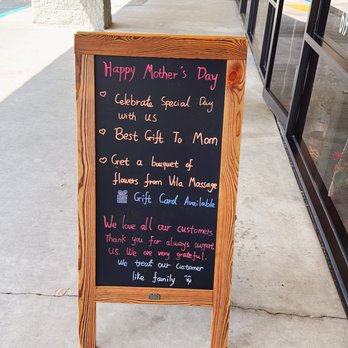 Happy Mother's Day
Celebrate Special Day
with us
Best Gift To Mom
Get a bouquet of
flowers from Vila Massage
Gift Card Available
We love all our customers
Thank you for always support
us. We are very grateful.
We treat our customer
like family